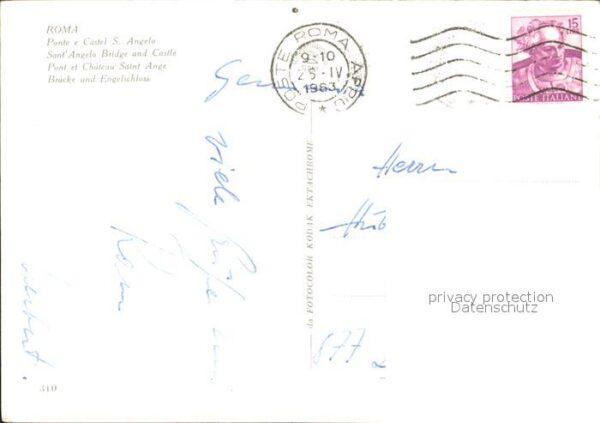 ROMA
Ponte e Castel S. Angelo
Sant'Angelo Bridge and Castle
Pont et Château Saint Ange
Brücke und Engelschloss
POSTE ROMA APPIO
9-10
25·IV
1963
15
POSTE ITALIANE
viele Grüße aus
Rom
Herrn
Hüb
877
da FOTOCOLOR KODAK EKTACHROME
privacy protection
Datenschutz
310